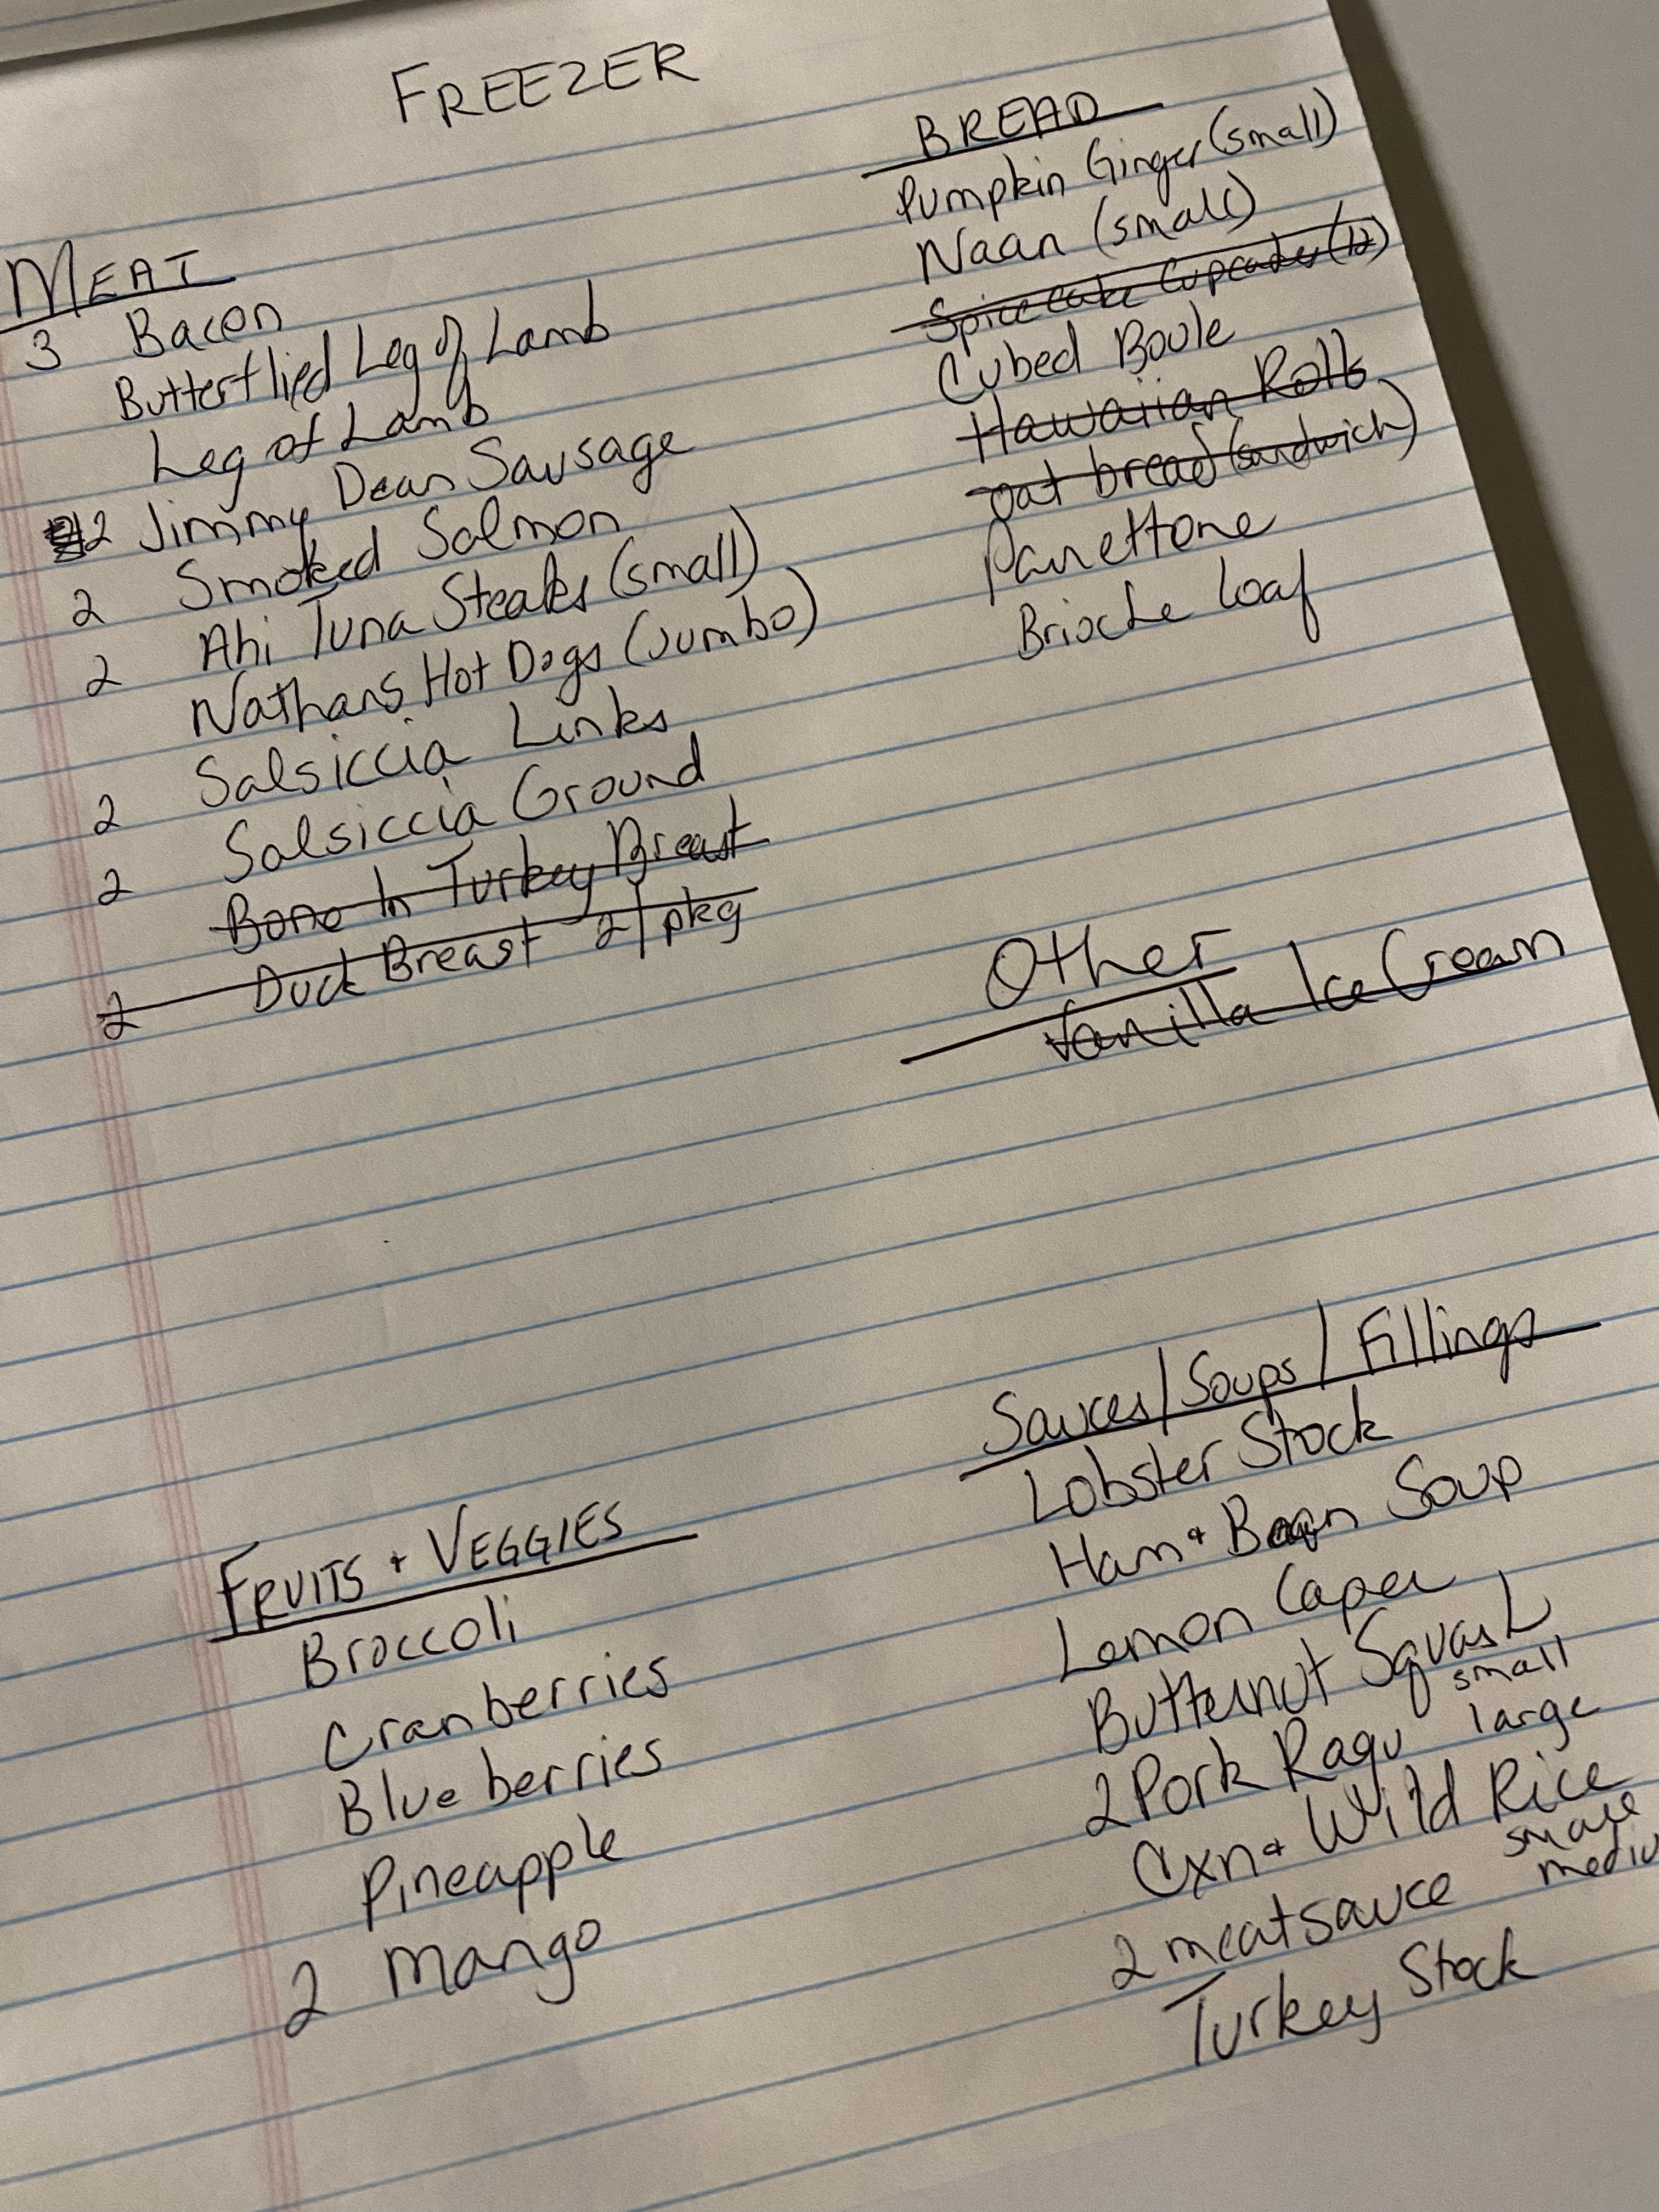 FREEZER
MEAT
3 Bacon
Butterflied Leg of Lamb
Leg of Lamb
2 Jimmy Dean Sausage
2 Smoked Salmon
2 Ahi Tuna Steaks (small)
Nathans Hot Dogs (Jumbo)
2 Salsiccia Links
2 Salsiccia Ground
Bone In Turkey Breast
2 Duck Breast 2/pkg
BREAD
Pumpkin Ginger (small)
Naan (small)
Spice cake Cupcakes (12)
Cubed Boule
Hawaiian Rolls
oat bread (sandwich)
Panettone
Brioche loaf
Other
Vanilla Ice Cream
FRUITS + VEGGIES
Broccoli
Cranberries
Blueberries
Pineapple
2 Mango
Sauces/Soups/Fillings
Lobster Stock
Ham + Bean Soup
Lemon Caper
Butternut Squash
small
2 Pork Ragu large
Cxn + Wild Rice
small
2 meatsauce mediu
Turkey Stock